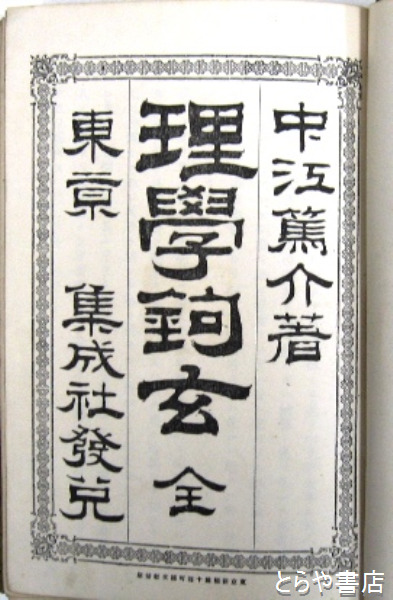 中江篤介著
理學鉤玄 全
東京 集成社發兌
とらや書店